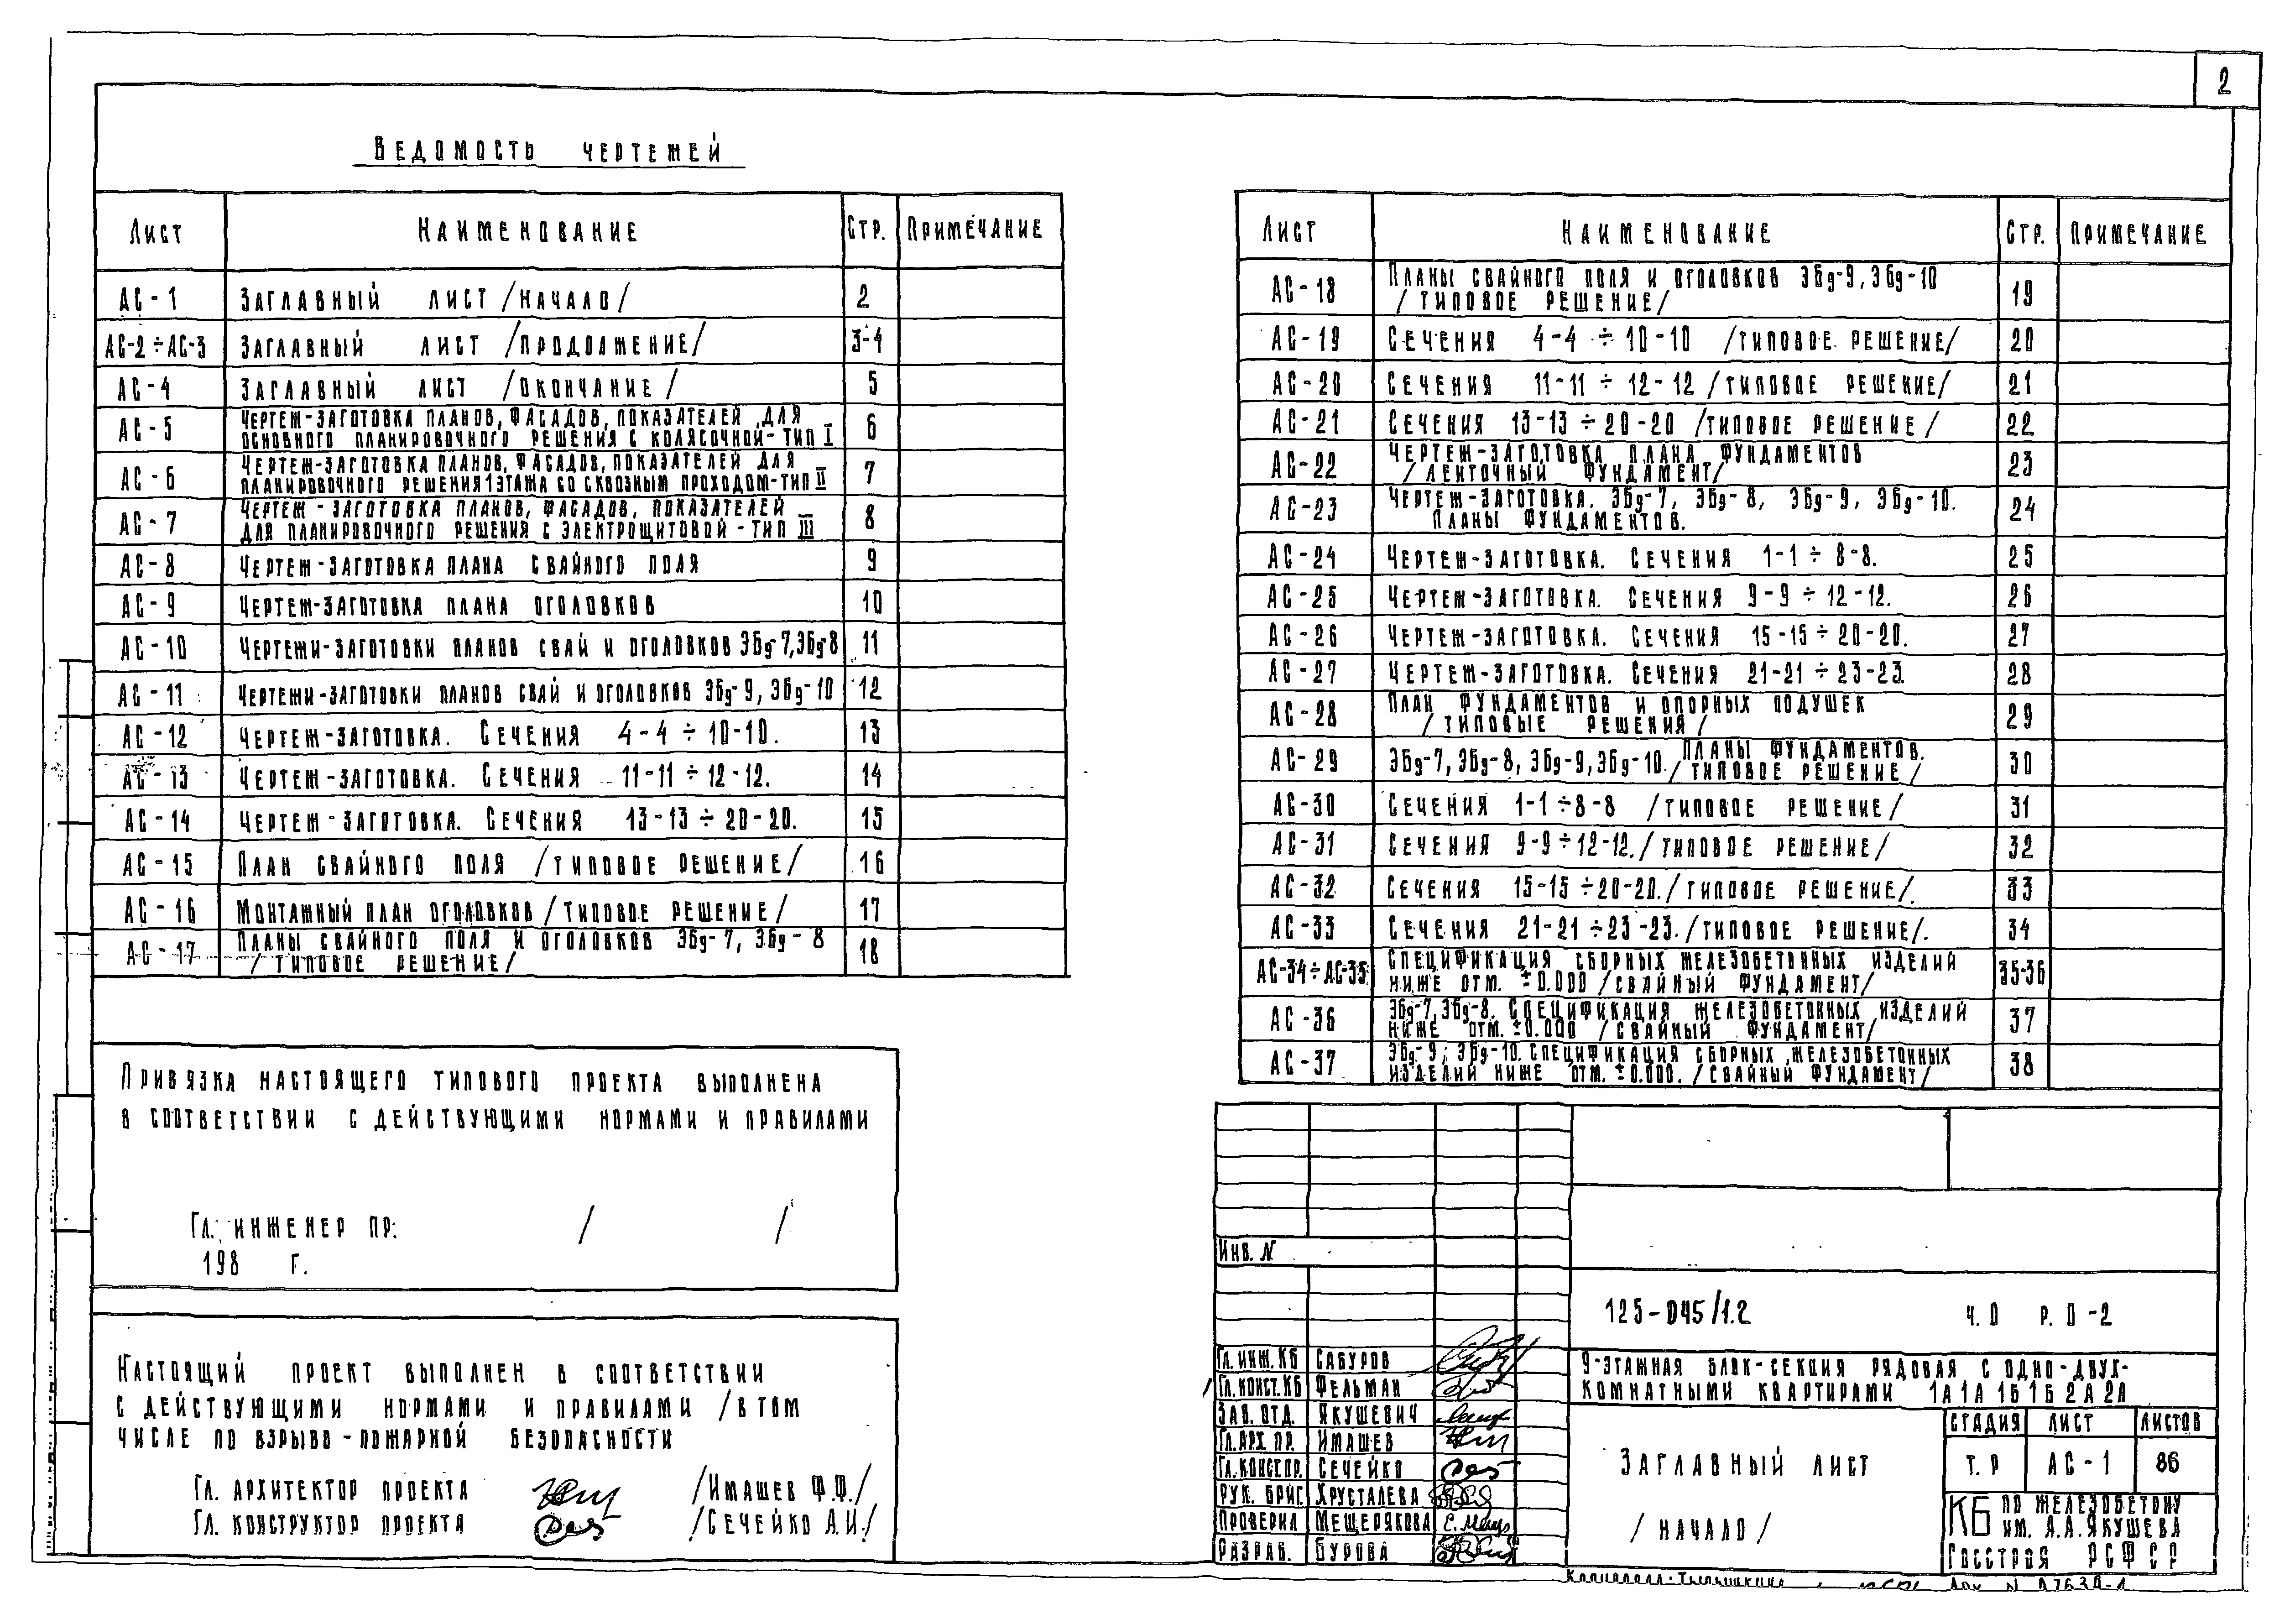 2
Ведомость чертежей
Лист Наименование Стр. Примечание
АС-1 Заглавный лист /начало/ 2
АС-2÷АС-3 Заглавный лист /продолжение/ 3-4
АС-4 Заглавный лист /окончание/ 5
АС-5 Чертеж-заготовка планов, фасадов, показателей для
основного планировочного решения с колясочной-тип I 6
АС-6 Чертеж-заготовка планов, фасадов, показателей для
планировочного решения 1 этажа со сквозным проходом-тип II 7
АС-7 Чертеж-заготовка планов, фасадов, показателей
для планировочного решения с электрощитовой-тип III 8
АС-8 Чертеж-заготовка плана свайного поля 9
АС-9 Чертеж-заготовка плана оголовков 10
АС-10 Чертежи-заготовки планов свай и оголовков Эбд-7, Эбд-8 11
АС-11 Чертежи-заготовки планов свай и оголовков Эбд-9, Эбд-10 12
АС-12 Чертеж-заготовка. Сечения 4-4÷10-10. 13
АС-13 Чертеж-заготовка. Сечения 11-11÷12-12. 14
АС-14 Чертеж-заготовка. Сечения 13-13÷20-20. 15
АС-15 План свайного поля /типовое решение/ 16
АС-16 Монтажный план оголовков /типовое решение/ 17
АС-17 Планы свайного поля и оголовков Эбд-7, Эбд-8
/типовое решение/ 18
Лист Наименование Стр. Примечание
АС-18 Планы свайного поля и оголовков Эбд-9, Эбд-10
/типовое решение/ 19
АС-19 Сечения 4-4÷10-10 /типовое решение/ 20
АС-20 Сечения 11-11÷12-12 /типовое решение/ 21
АС-21 Сечения 13-13÷20-20 /типовое решение/ 22
АС-22 Чертеж-заготовка плана фундаментов
/ленточный фундамент/ 23
АС-23 Чертеж-заготовка. Эбд-7, Эбд-8, Эбд-9, Эбд-10.
Планы фундаментов. 24
АС-24 Чертеж-заготовка. Сечения 1-1÷8-8. 25
АС-25 Чертеж-заготовка. Сечения 9-9÷12-12. 26
АС-26 Чертеж-заготовка. Сечения 15-15÷20-20. 27
АС-27 Чертеж-заготовка. Сечения 21-21÷23-23. 28
АС-28 План фундаментов и опорных подушек
/типовые решения/ 29
АС-29 Эбд-7, Эбд-8, Эбд-9, Эбд-10. Планы фундаментов.
/типовое решение/ 30
АС-30 Сечения 1-1÷8-8 /типовое решение/ 31
АС-31 Сечения 9-9÷12-12. /типовое решение/ 32
АС-32 Сечения 15-15÷20-20. /типовое решение/. 33
АС-33 Сечения 21-21÷23-23. /типовое решение/. 34
АС-34÷АС-35 Спецификация сборных железобетонных изделий
ниже отм. ±0.000 /свайный фундамент/ 35-36
АС-36 Эбд-7, Эбд-8. Спецификация железобетонных изделий
ниже отм. ±0.000 /свайный фундамент/ 37
АС-37 Эбд-9, Эбд-10. Спецификация сборных железобетонных
изделий ниже отм. ±0.000. /свайный фундамент/ 38
Привязка настоящего типового проекта выполнена
в соответствии с действующими нормами и правилами
Гл. инженер пр. / /
198 г.
Настоящий проект выполнен в соответствии
с действующими нормами и правилами /в том
числе по взрыво-пожарной безопасности
Гл. архитектор проекта /Имашев Ф.Ф./
Гл. конструктор проекта /Сечейко А.И./
Инв. N
125-045/1.2 ч.0 р.0-2
Гл. инж. КБ Сабуров
Гл. конст. КБ Фельман
Зав. отд. Якушевич
Гл. арх. пр. Имашев
Гл. конст. пр. Сечейко
Рук. бриг. Хрусталева
Проверил Мещерякова
Разраб. Бурова
9-этажная блок-секция рядовая с одно-двух-
комнатными квартирами 1А 1А 1Б 1Б 2А 2А
Заглавный лист
/начало/
Стадия Лист Листов
Т.Р АС-1 86
КБ по железобетону
им. А.А. Якушева
Госстроя РСФСР